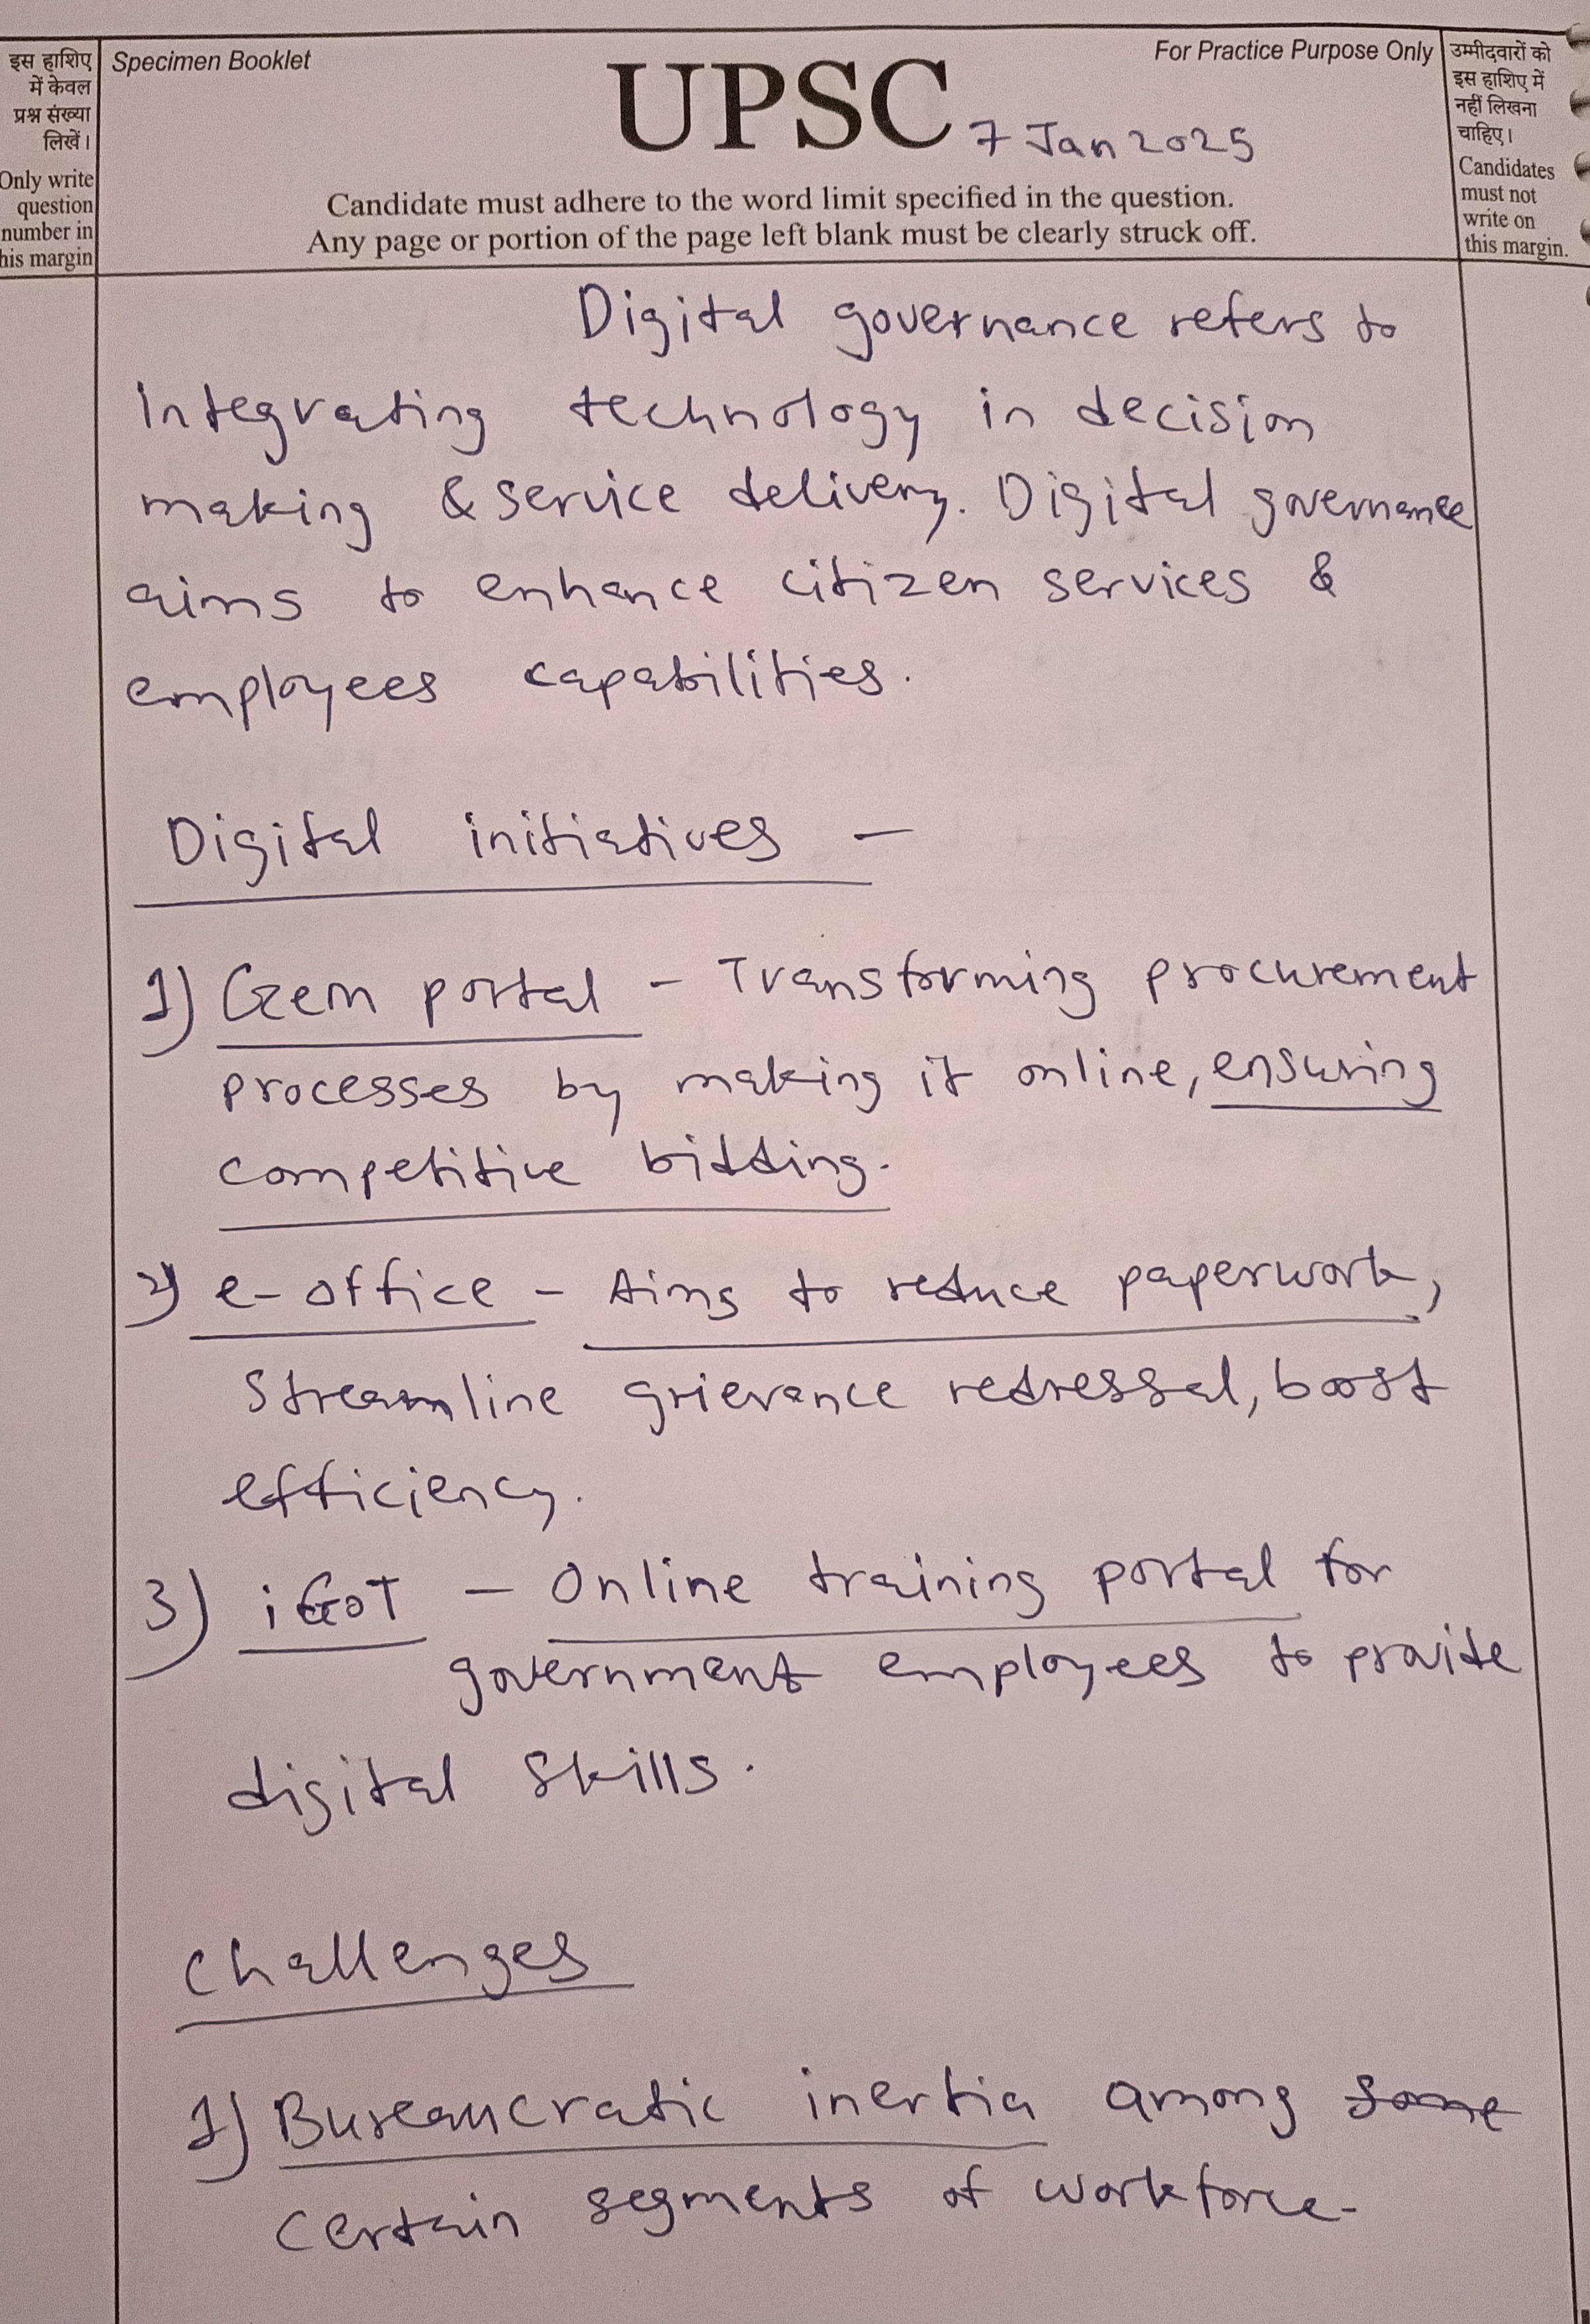 इस हाशिए
में केवल
प्रश्न संख्या
लिखें।
Only write
question
number in
his margin
Specimen Booklet
For Practice Purpose Only
UPSC
7 Jan 2025
Candidate must adhere to the word limit specified in the question.
Any page or portion of the page left blank must be clearly struck off.
उम्मीदवारों को
इस हाशिए में
नहीं लिखना
चाहिए।
Candidates
must not
write on
this margin.
Digital governance refers to
integrating technology in decision
making & service delivery. Digital governance
aims to enhance citizen services &
employees capabilities.
Digital initiatives -
1) Gem portal - Transforming procurement
processes by making it online, ensuring
competitive bidding.
2) e-office - Aims to reduce paperwork,
Streamline grievance redressal, boost
efficiency.
3) iGoT - Online training portal for
government employees to provide
digital skills.
Challenges
1) Bureaucratic inertia among some
certain segments of workforce.